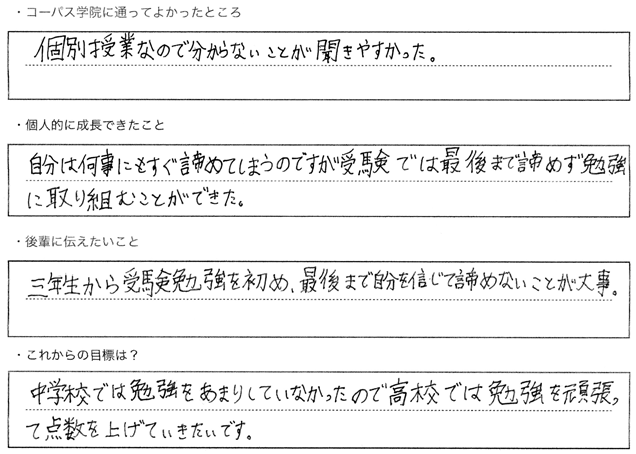 ・コーパス学院に通ってよかったところ
個別授業なので分からないことが聞きやすかった。
・個人的に成長できたこと
自分は何事にもすぐ諦めてしまうのですが受験では最後まで諦めず勉強
に取り組むことができた。
・後輩に伝えたいこと
三年生から受験勉強を初め、最後まで自分を信じて諦めないことが大事。
・これからの目標は？
中学校では勉強をあまりしていなかったので高校では勉強を頑張っ
て点数を上げていきたいです。